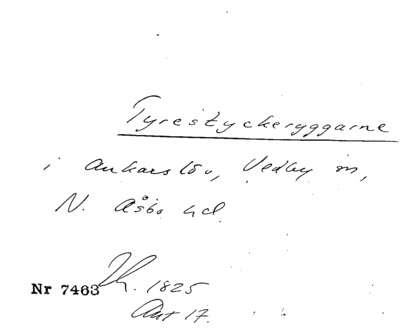 Tyrestyckeryggarne
i Ankarslöv, Vedby sn,
N. Åsbo hd.
Nr 7463 Jh. 1825
Akt 17.